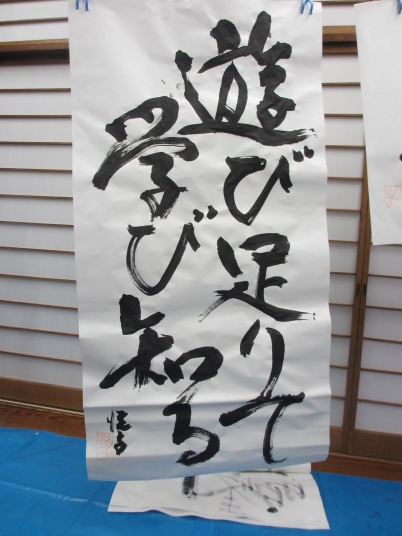 遊び足りて
学び知る